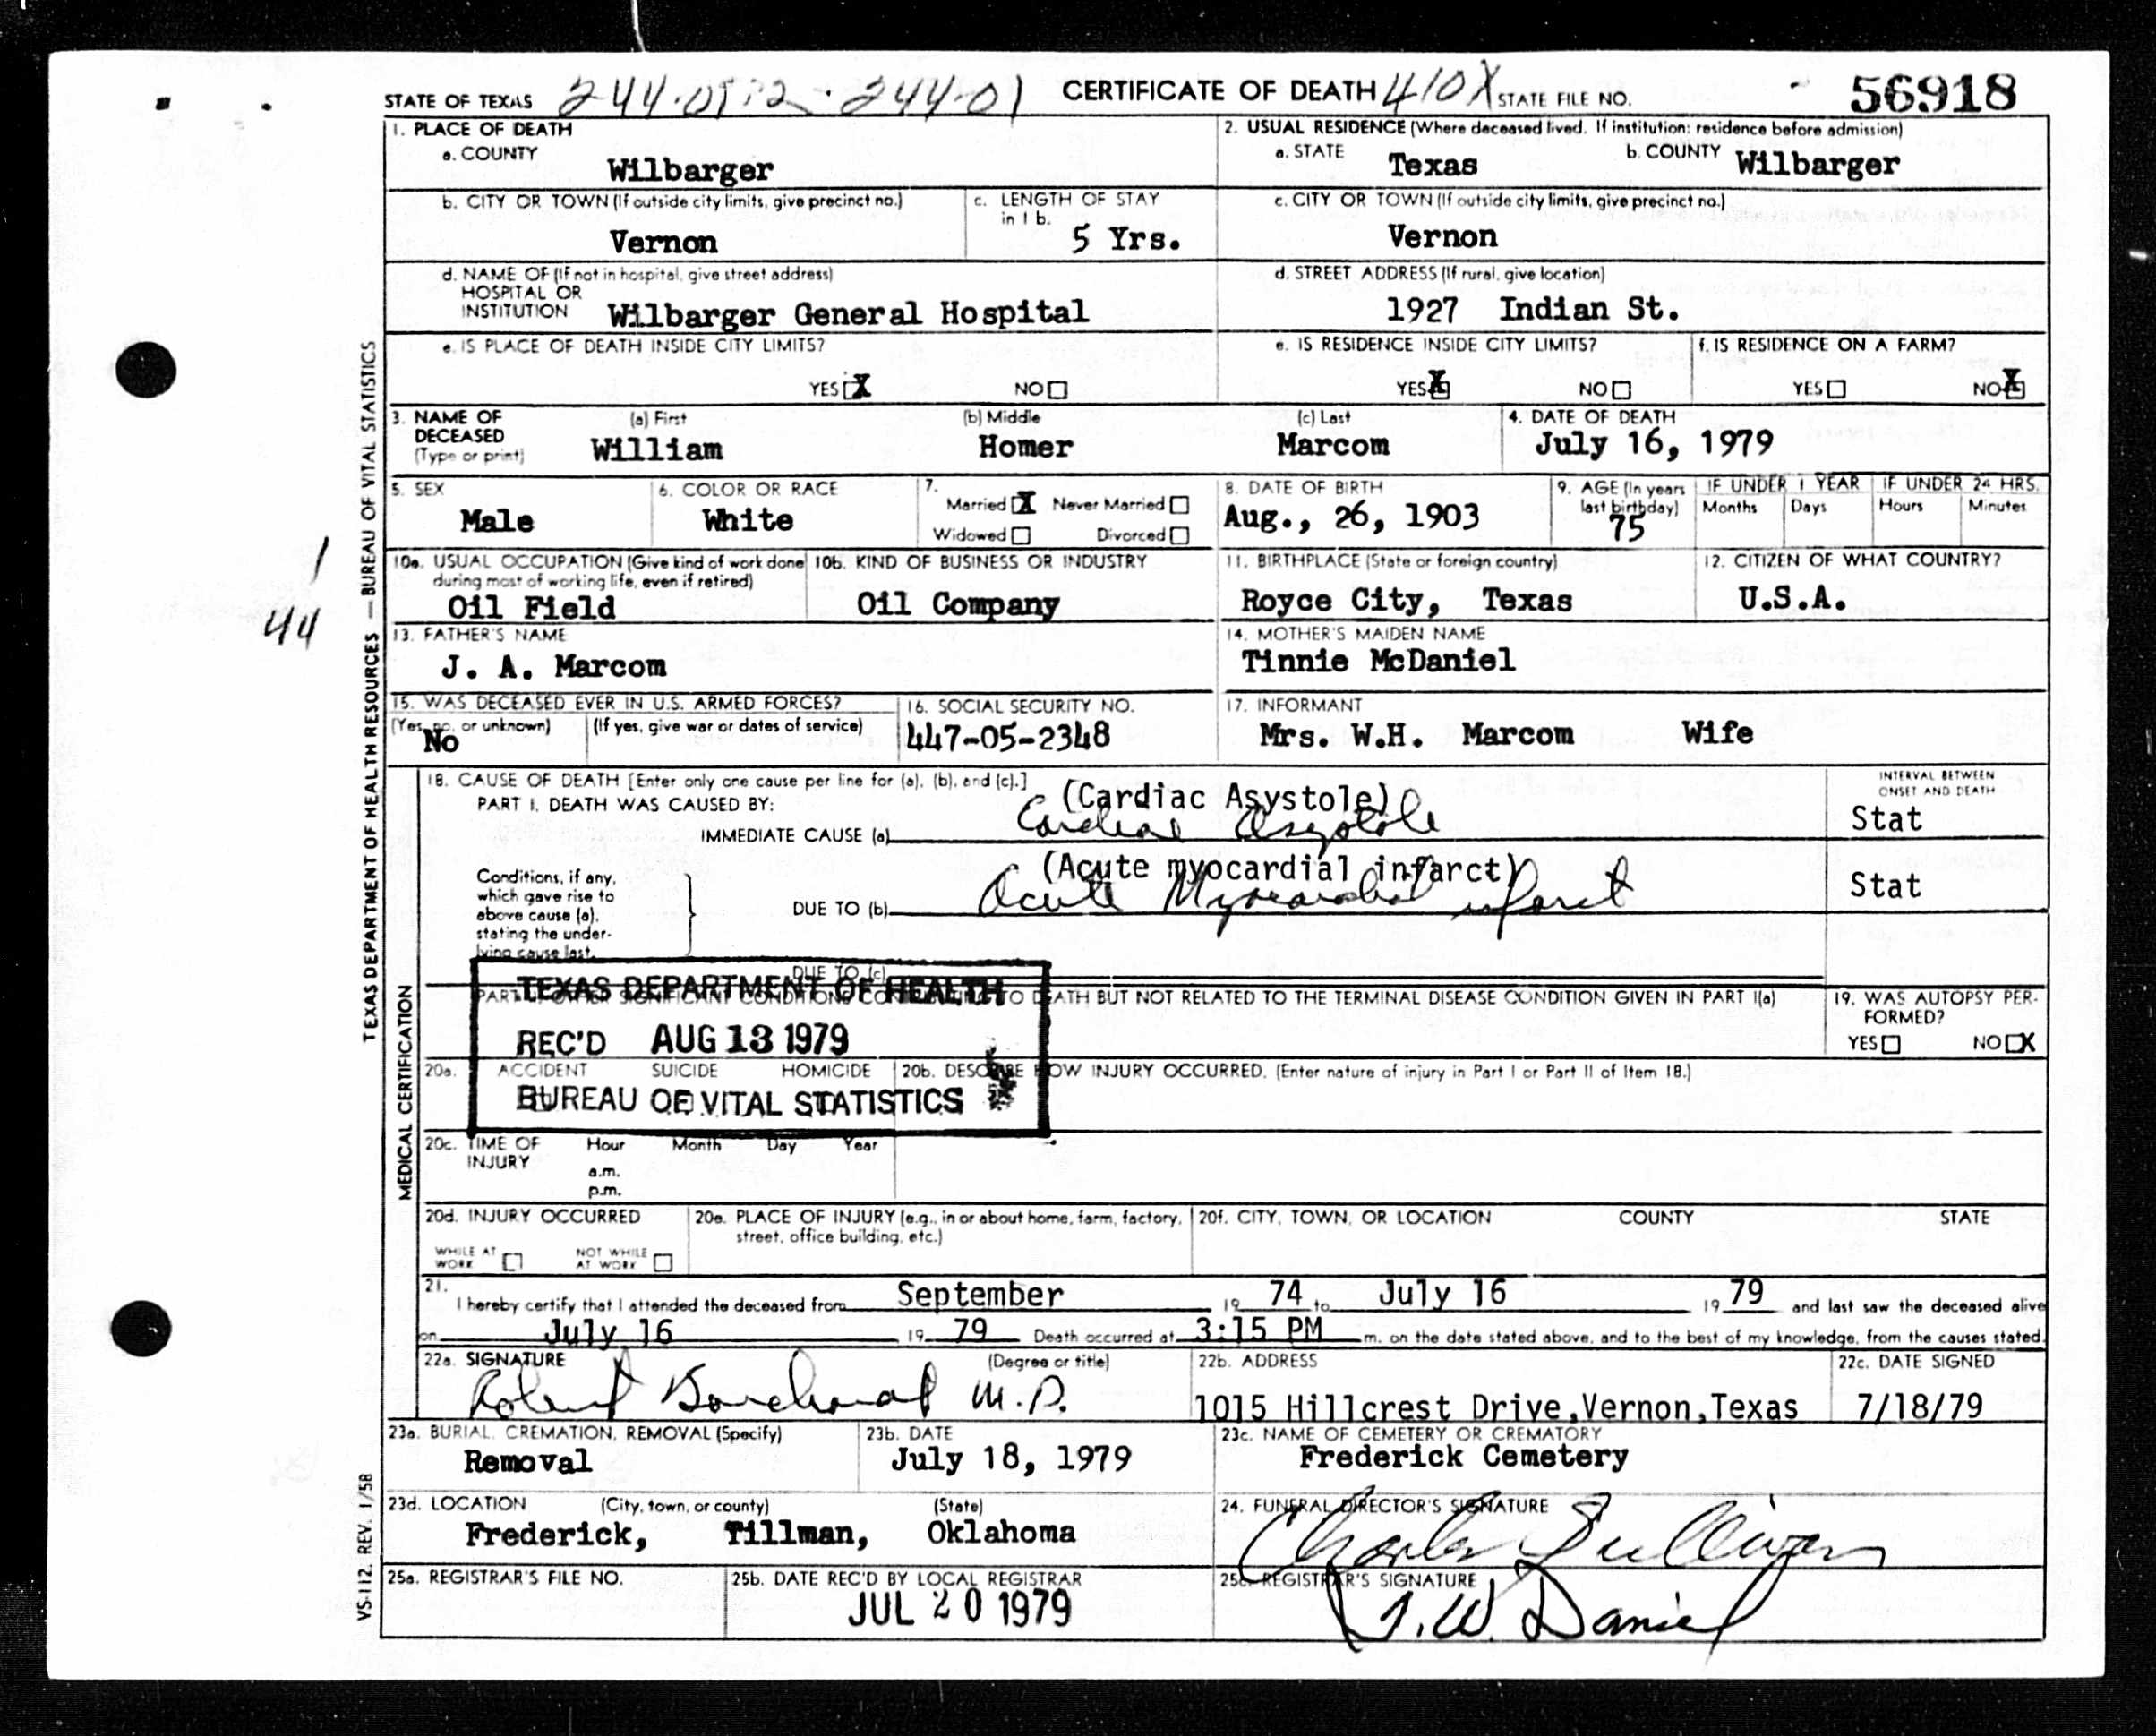 STATE OF TEXAS 244-01 CERTIFICATE OF DEATH 410X STATE FILE NO. 56918
1. PLACE OF DEATH
a. COUNTY
Wilbarger
2. USUAL RESIDENCE (Where deceased lived. If institution: residence before admission)
a. STATE Texas b. COUNTY Wilbarger
b. CITY OR TOWN (If outside city limits, give precinct no.)
Vernon
c. LENGTH OF STAY
in 1 b.
5 Yrs.
c. CITY OR TOWN (If outside city limits, give precinct no.)
Vernon
d. NAME OF (If not in hospital, give street address)
HOSPITAL OR
INSTITUTION Wilbarger General Hospital
d. STREET ADDRESS (If rural, give location)
1927 Indian St.
e. IS PLACE OF DEATH INSIDE CITY LIMITS?
YES X NO
e. IS RESIDENCE INSIDE CITY LIMITS?
YES X NO
f. IS RESIDENCE ON A FARM?
YES NO X
3. NAME OF
DECEASED
(Type or print)
(a) First
William
(b) Middle
Homer
(c) Last
Marcom
4. DATE OF DEATH
July 16, 1979
5. SEX
Male
6. COLOR OR RACE
White
7.
Married X Never Married
Widowed Divorced
8. DATE OF BIRTH
Aug., 26, 1903
9. AGE (In years
last birthday)
75
IF UNDER 1 YEAR
Months Days
IF UNDER 24 HRS.
Hours Minutes
10a. USUAL OCCUPATION (Give kind of work done
during most of working life, even if retired)
Oil Field
10b. KIND OF BUSINESS OR INDUSTRY
Oil Company
11. BIRTHPLACE (State or foreign country)
Royce City, Texas
12. CITIZEN OF WHAT COUNTRY?
U.S.A.
13. FATHER'S NAME
J. A. Marcom
14. MOTHER'S MAIDEN NAME
Tinnie McDaniel
15. WAS DECEASED EVER IN U.S. ARMED FORCES?
(Yes, no, or unknown) (If yes, give war or dates of service)
No
16. SOCIAL SECURITY NO.
447-05-2348
17. INFORMANT
Mrs. W.H. Marcom Wife
1
44
TEXAS DEPARTMENT OF HEALTH RESOURCES — BUREAU OF VITAL STATISTICS
MEDICAL CERTIFICATION
18. CAUSE OF DEATH [Enter only one cause per line for (a), (b), and (c).]
PART I. DEATH WAS CAUSED BY:
(Cardiac Asystole)
IMMEDIATE CAUSE (a) Cardiac Asystole
INTERVAL BETWEEN
ONSET AND DEATH
Stat
Conditions, if any,
which gave rise to
above cause (a),
stating the under-
lying cause last.
(Acute myocardial infarct)
DUE TO (b) Acute Myocardial infarct
Stat
DUE TO (c)
PART II. OTHER SIGNIFICANT CONDITIONS CONTRIBUTING TO DEATH BUT NOT RELATED TO THE TERMINAL DISEASE CONDITION GIVEN IN PART I(a)
19. WAS AUTOPSY PER-
FORMED?
YES NO X
TEXAS DEPARTMENT OF HEALTH
REC'D AUG 13 1979
BUREAU OF VITAL STATISTICS
20a. ACCIDENT SUICIDE HOMICIDE
20b. DESCRIBE HOW INJURY OCCURRED. (Enter nature of injury in Part I or Part II of Item 18.)
20c. TIME OF
INJURY
Hour Month Day Year
a.m.
p.m.
20d. INJURY OCCURRED
WHILE AT
WORK
NOT WHILE
AT WORK
20e. PLACE OF INJURY (e.g., in or about home, farm, factory,
street, office building, etc.)
20f. CITY, TOWN, OR LOCATION COUNTY STATE
21.
I hereby certify that I attended the deceased from September 19 74 to July 16 19 79 and last saw the deceased alive
on July 16 19 79 Death occurred at 3:15 PM m. on the date stated above, and to the best of my knowledge, from the causes stated.
22a. SIGNATURE (Degree or title)
Robert M.D.
22b. ADDRESS
1015 Hillcrest Drive,Vernon,Texas
22c. DATE SIGNED
7/18/79
23a. BURIAL, CREMATION, REMOVAL (Specify)
Removal
23b. DATE
July 18, 1979
23c. NAME OF CEMETERY OR CREMATORY
Frederick Cemetery
23d. LOCATION (City, town, or county) (State)
Frederick, Tillman, Oklahoma
24. FUNERAL DIRECTOR'S SIGNATURE
Charles Sullivan
25a. REGISTRAR'S FILE NO.
25b. DATE REC'D BY LOCAL REGISTRAR
JUL 20 1979
25c. REGISTRAR'S SIGNATURE
T.W. Daniel
VS-112. REV. 1/58